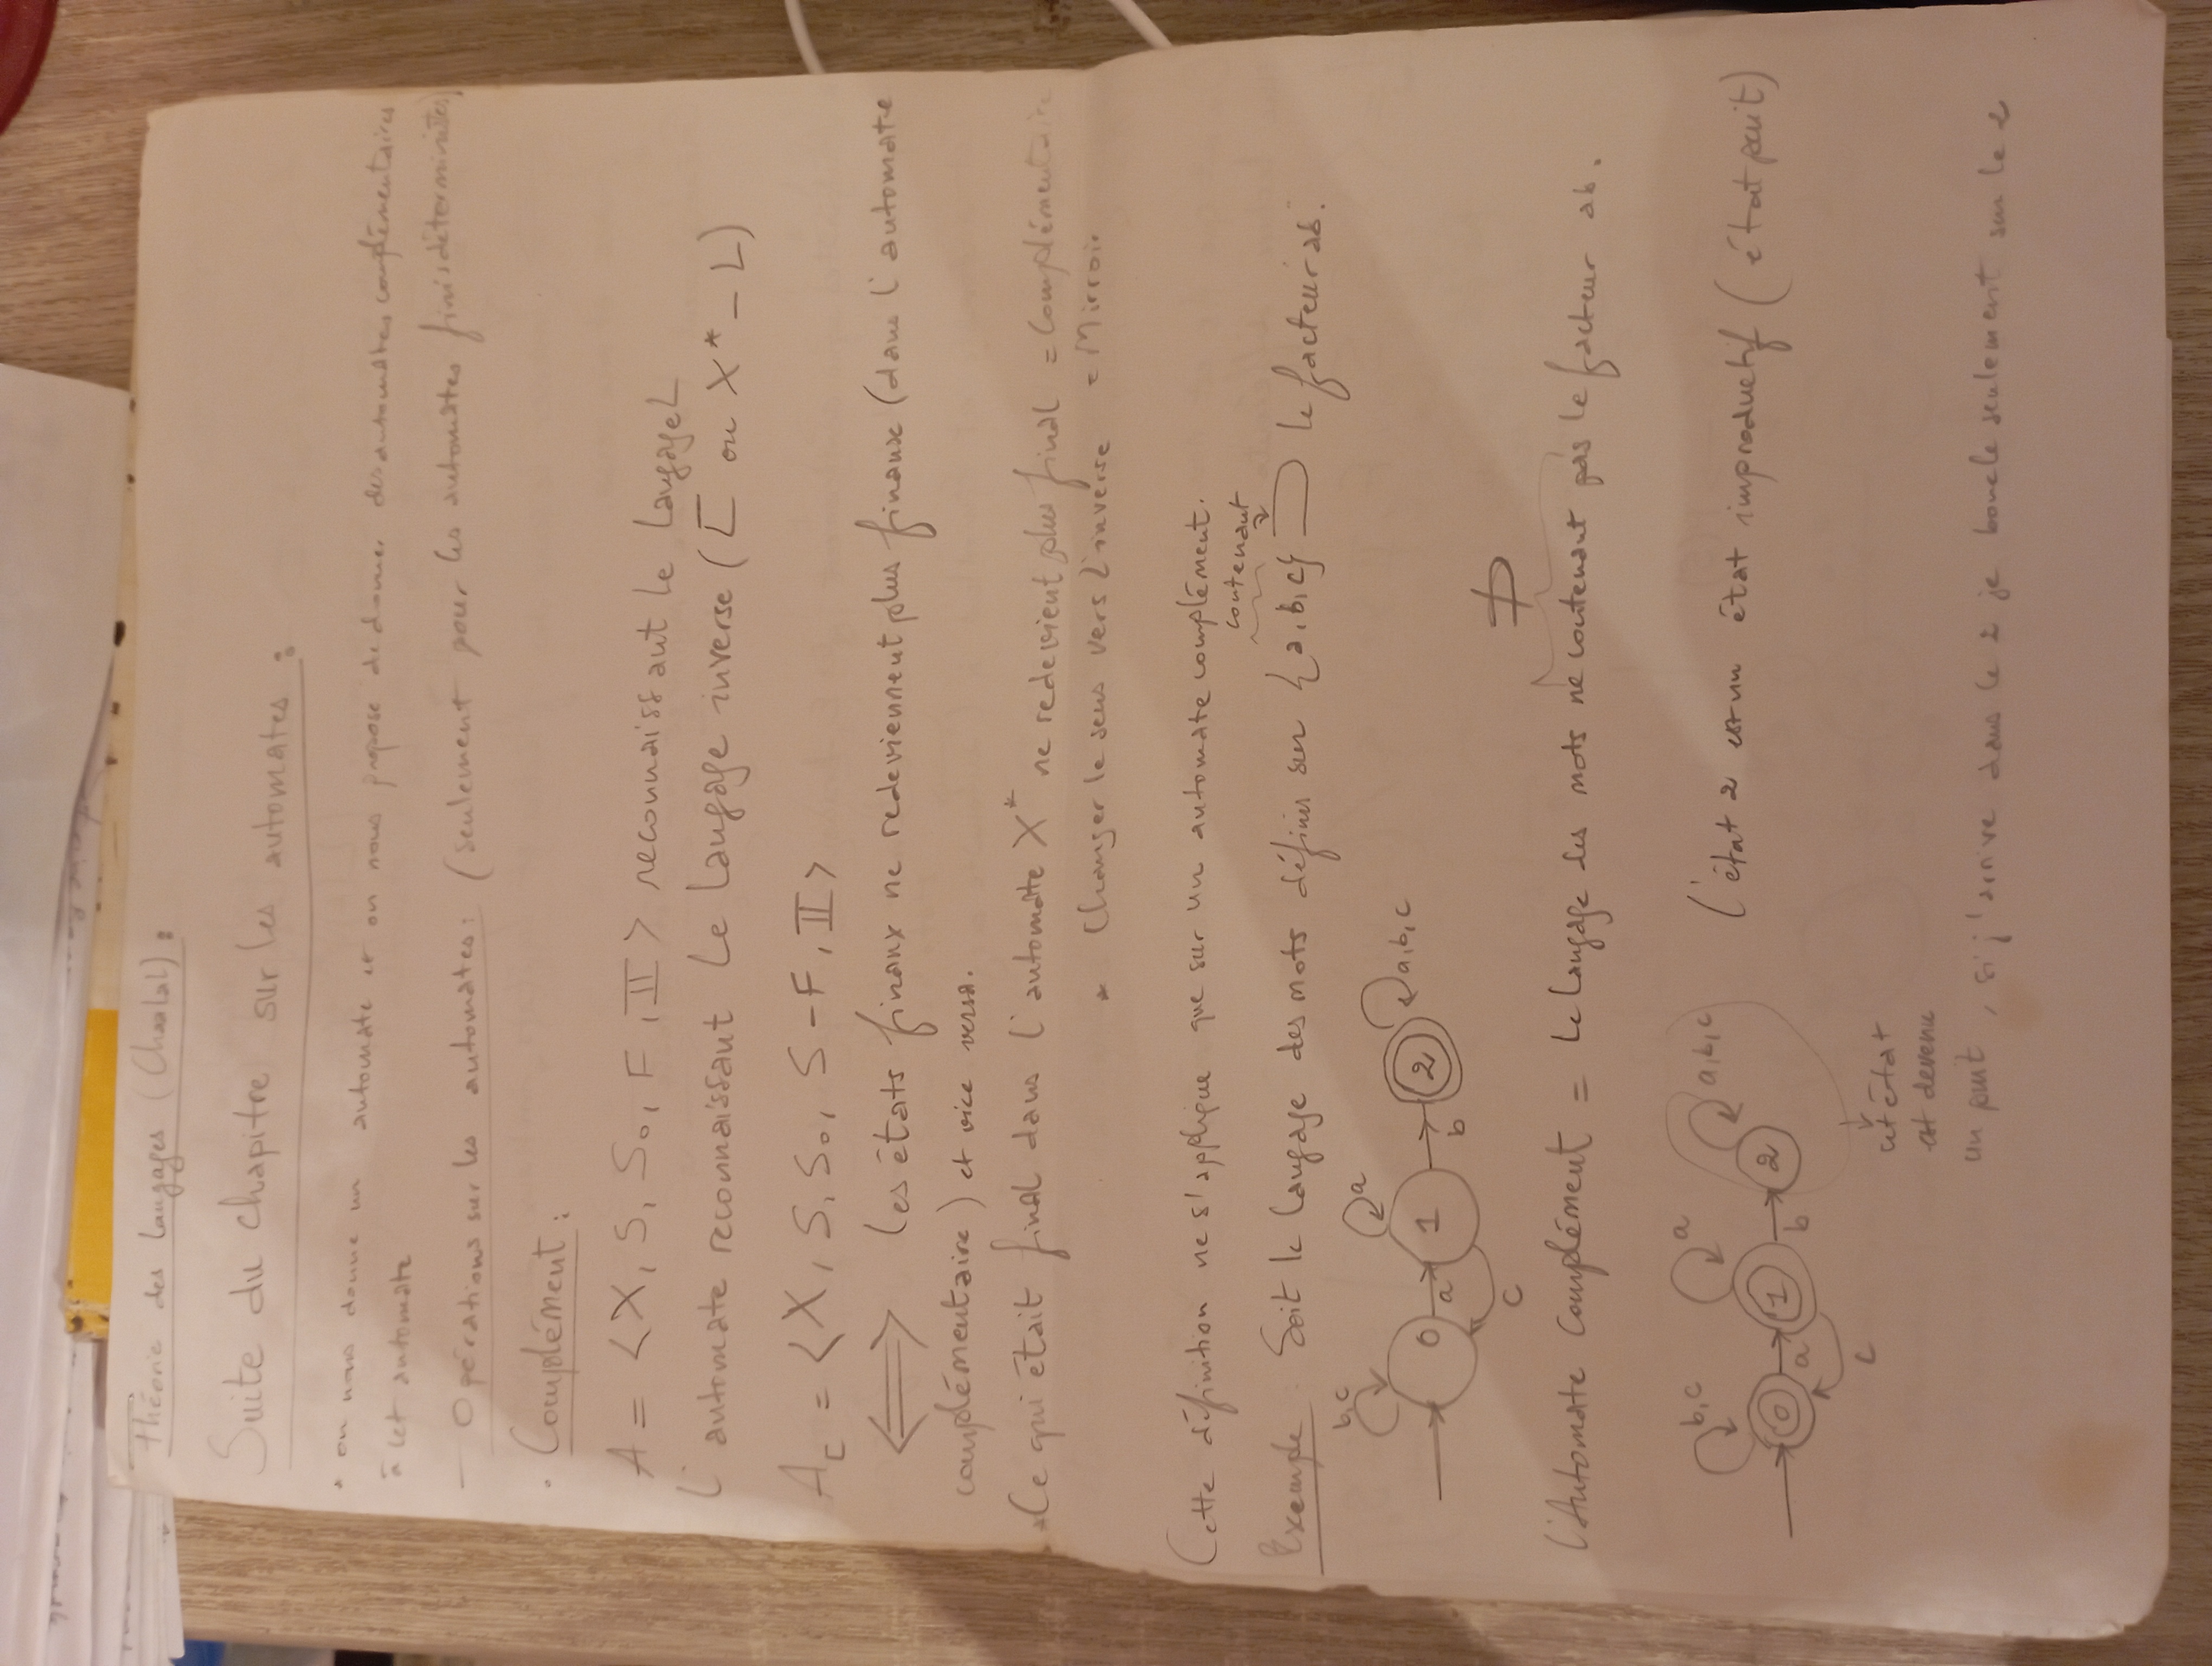 Théorie des langages (Chaalal) :
Suite du chapitre sur les automates :
* on nous donne un automate et on nous propose de donner des automates complémentaires
à cet automate
— Opérations sur les automates : (seulement pour les automates finis déterministes)
. Complément :
A = <X, S, S₀, F, II> reconnaissant le langage L
l'automate reconnaissant le langage inverse (L̅ ou X* - L)
A_C = <X, S, S₀, S-F, II>
⟺ les états finaux ne redeviennent plus finaux (dans l'automate
complémentaire) et vice versa.
* Ce qui était final dans l'automate X* ne redevient plus final = complémentaire
* Changer le sens vers l'inverse = Mirroir
Cette définition ne s'applique que sur un automate complément.
contenant
Exemple Soit le langage des mots définis sur {a,b,c} ⊃ le facteur ab.
b,c
a
0 a 1 b 2 a,b,c
c
⊅
l'Automate complément = le langage des mots ne contenant pas le facteur ab.
b,c a a,b,c
0 a 1 b 2
c
l'état 2 est un état improductif (état puit)
cet état
est devenu
un puit, si j'arrive dans le 2 je boucle seulement sur le 2